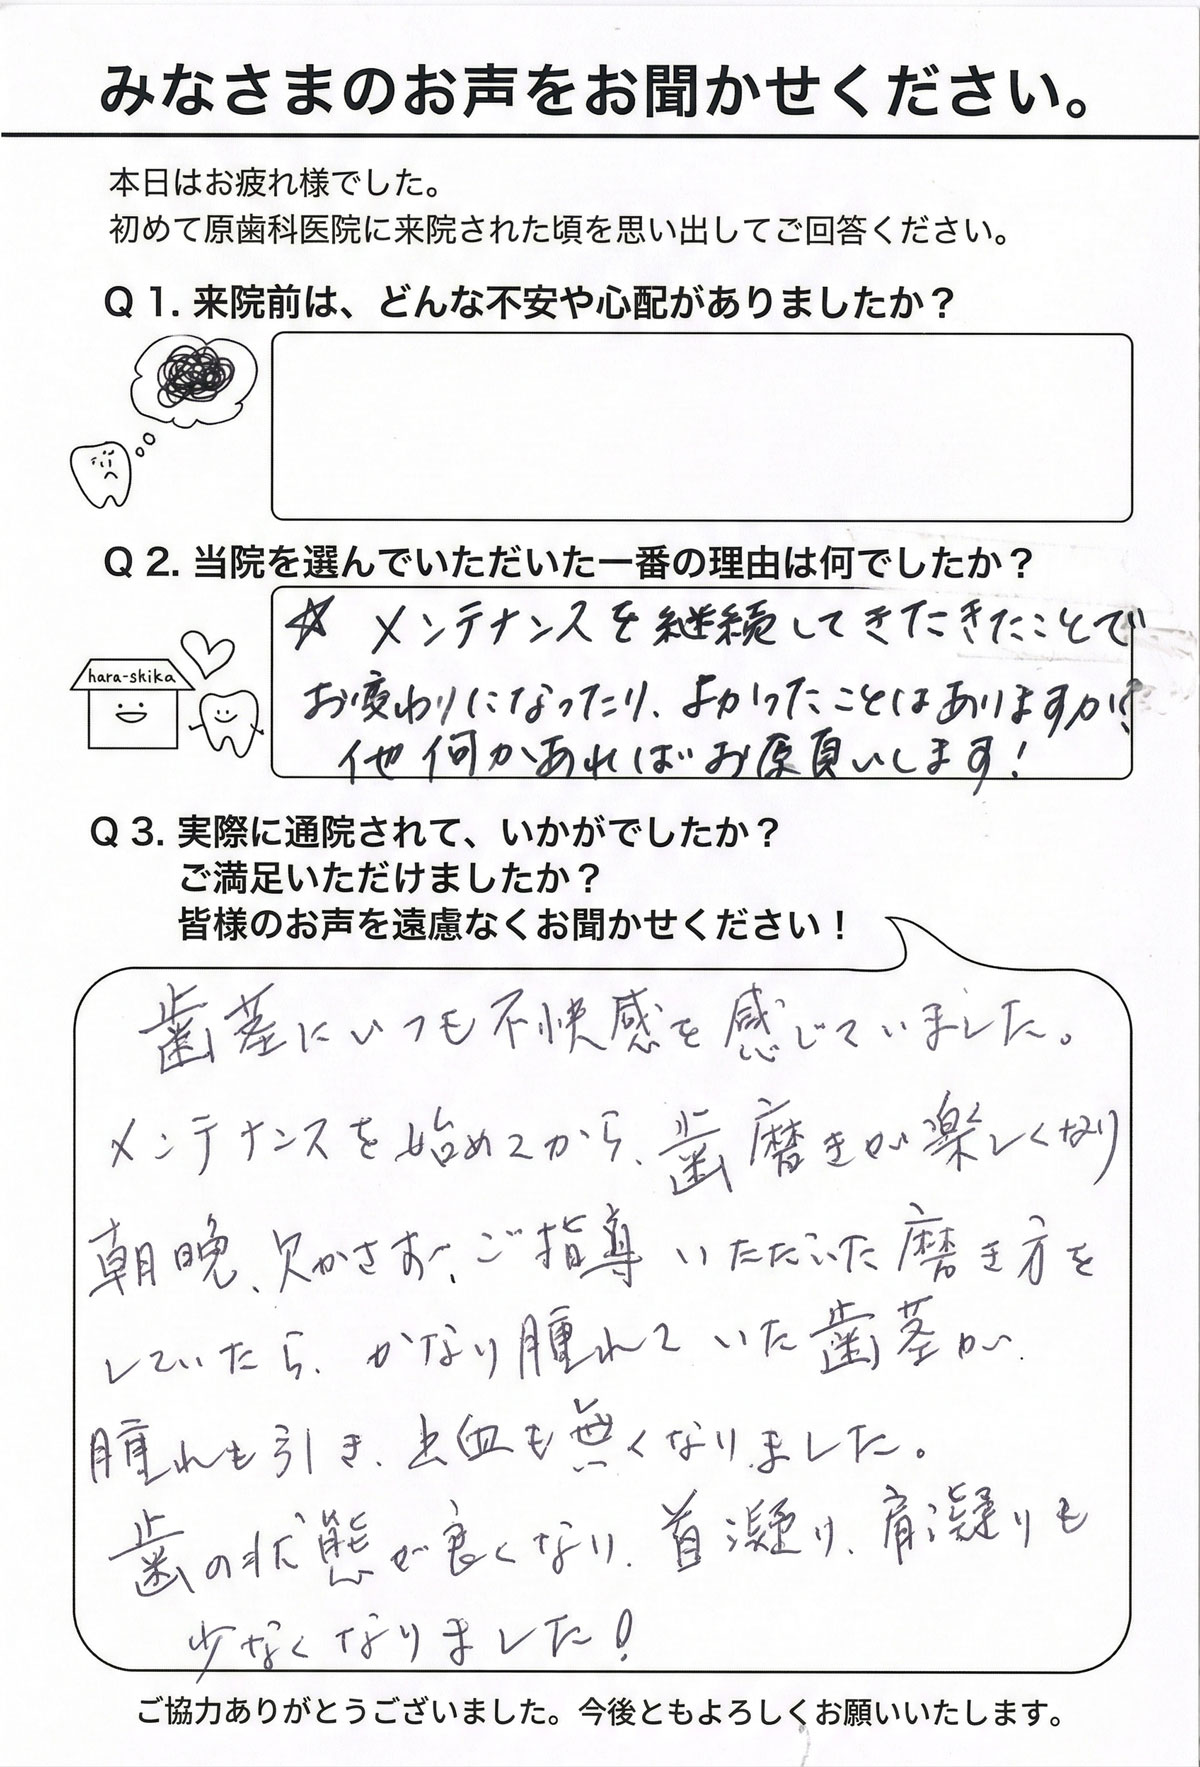 みなさまのお声をお聞かせください。
本日はお疲れ様でした。
初めて原歯科医院に来院された頃を思い出してご回答ください。
Q 1. 来院前は、どんな不安や心配がありましたか？
Q 2. 当院を選んでいただいた一番の理由は何でしたか？
☆ メンテナンスを継続してきたきたことで
hara-shika
お変わりになったり、よかったことはありますか?
他 何かあればお願いします!
Q 3. 実際に通院されて、いかがでしたか？
ご満足いただけましたか？
皆様のお声を遠慮なくお聞かせください！
歯茎にいつも不快感を感じていました。
メンテナンスを始めてから、歯磨きが楽しくなり
朝晩、欠かさず、ご指導いただいた磨き方を
していたら、かなり腫れていた歯茎が、
腫れも引き、出血も無くなりました。
歯の状態が良くなり、首凝り、肩凝りも
少なくなりました!
ご協力ありがとうございました。今後ともよろしくお願いいたします。